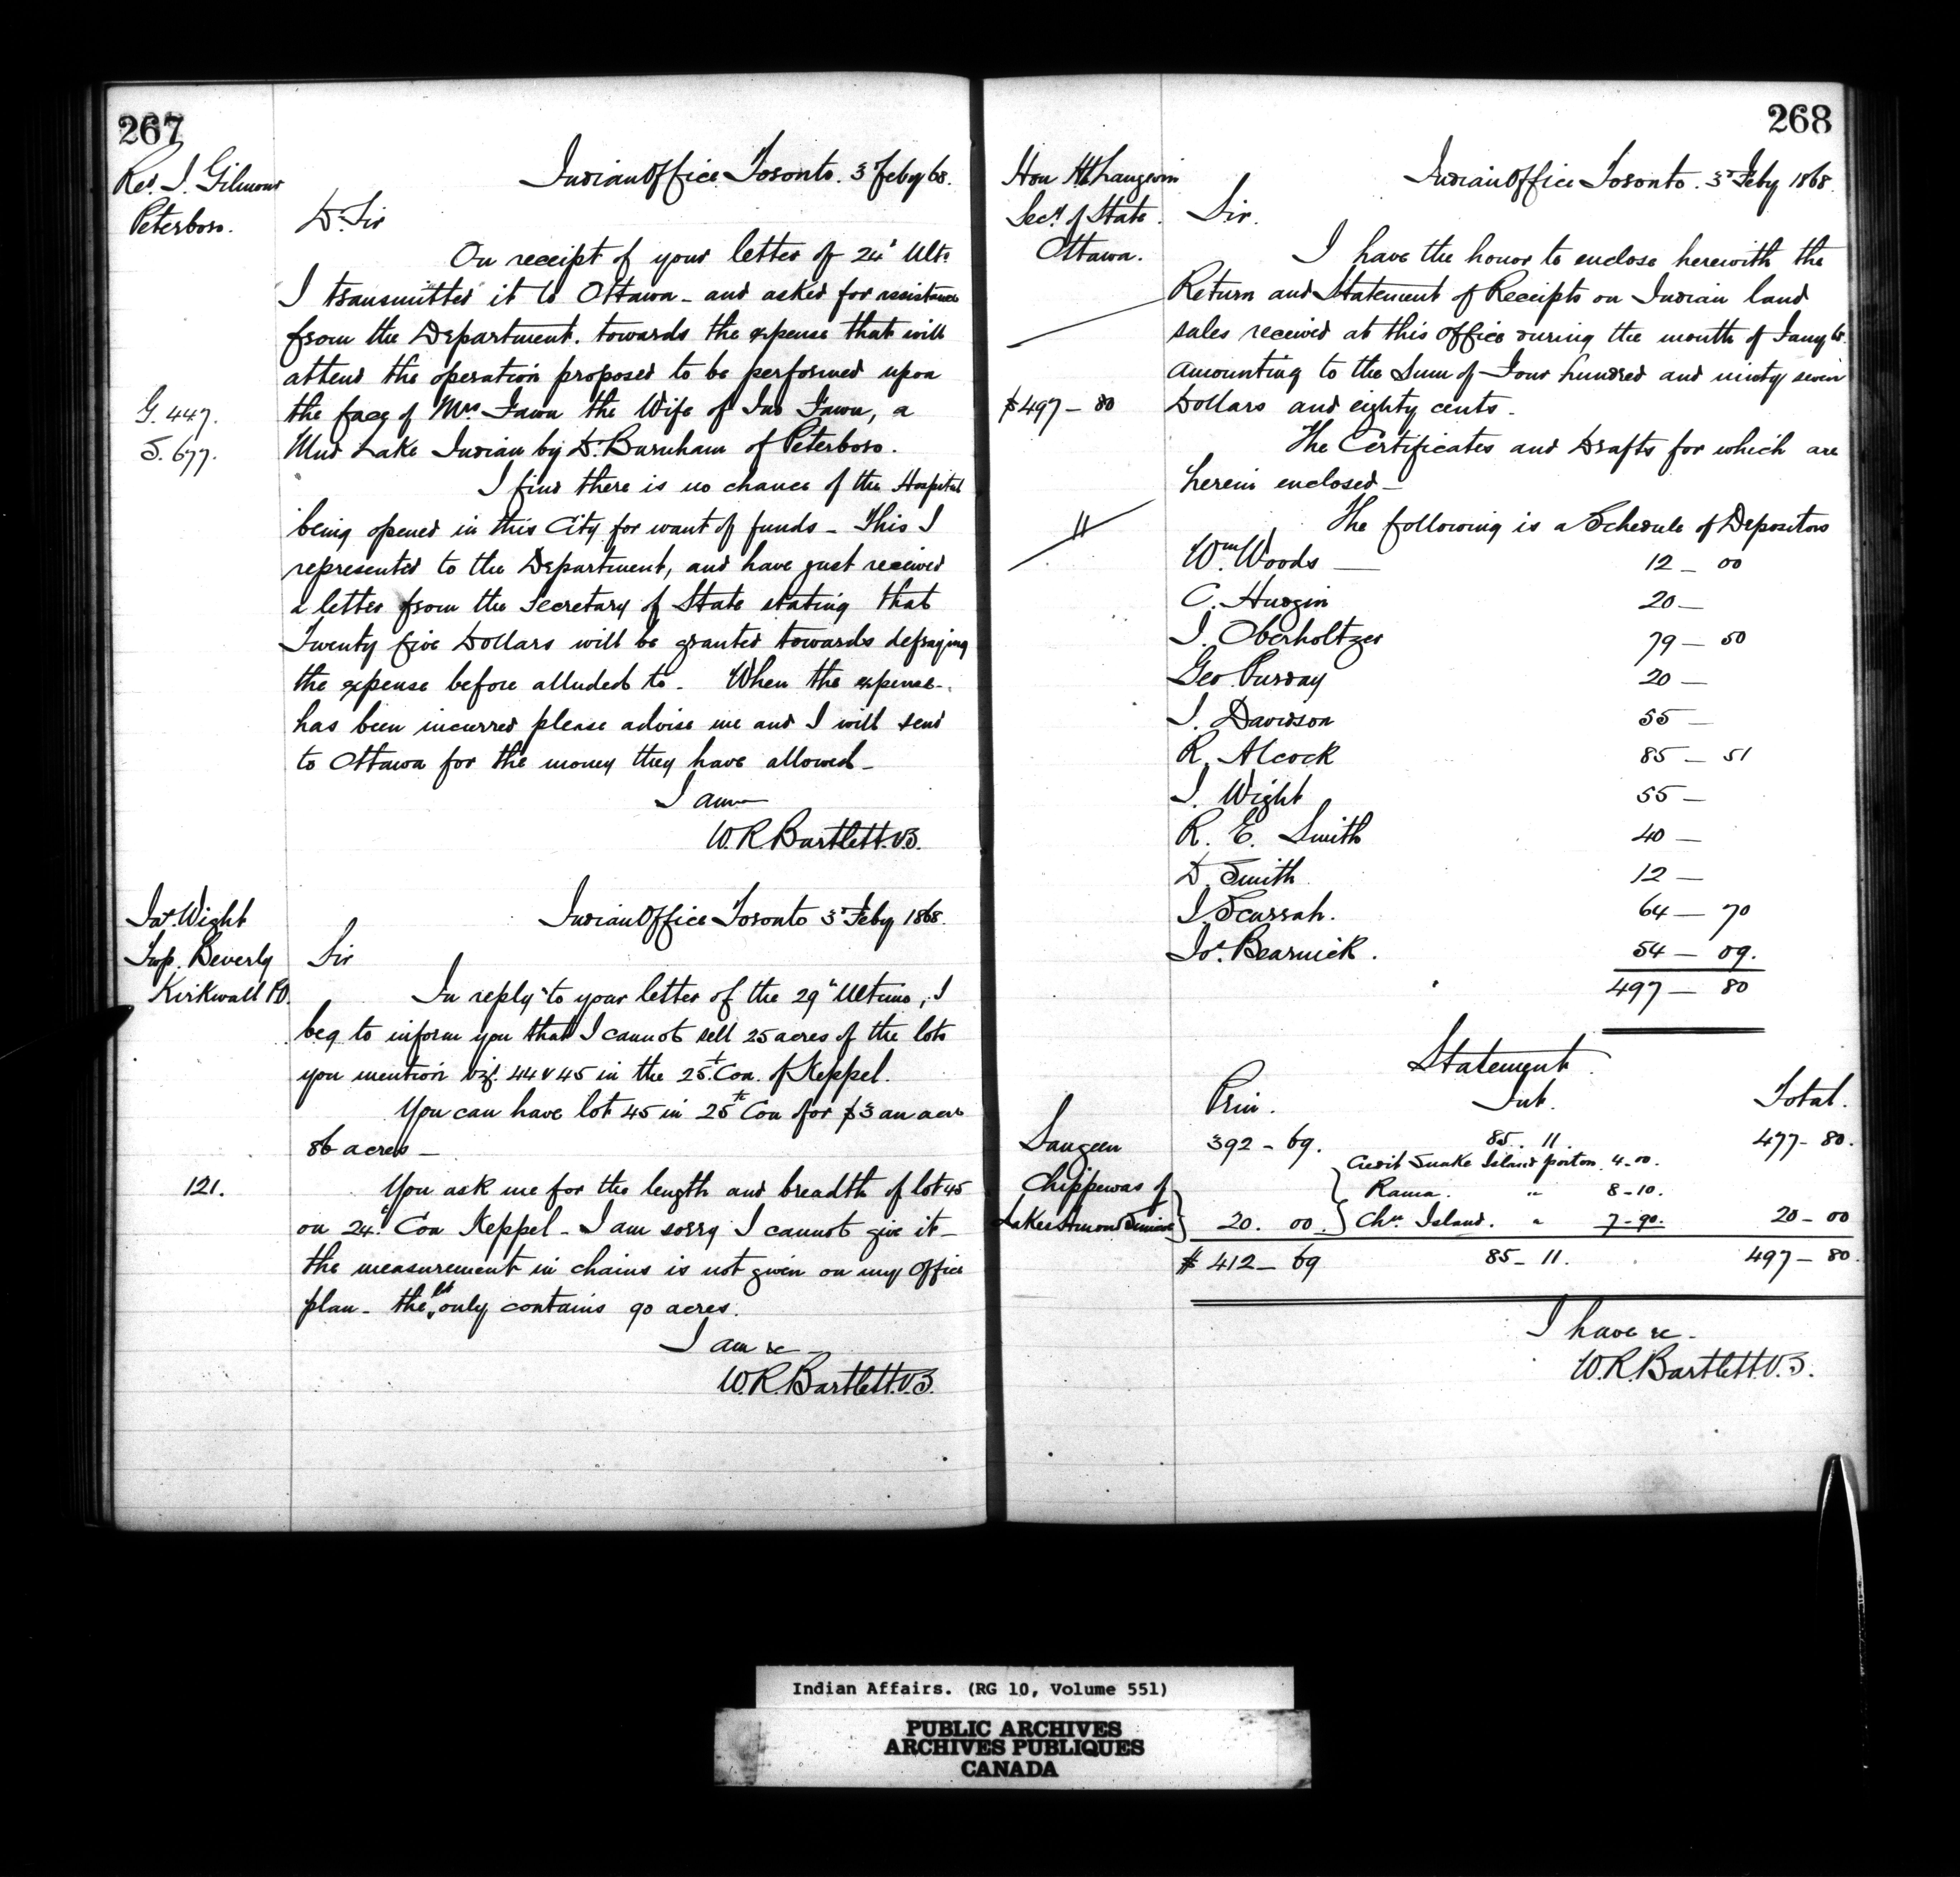 267
Revd. J. Gilmour
Peterboro.
Indian Office Toronto. 3 Feby 68.
Dr Sir
On receipt of your letter of 24th Ulto
I transmitted it to Ottawa - and asked for assistance
from the Department. towards the expense that will
attend the operation proposed to be performed upon
G. 447.
the face of Mrs Fawn the Wife of Jno Fawn, a
S. 677.
Mud Lake Indian by Dr. Burnham of Peterboro.
I find there is no chance of the Hospital
being opened in this City for want of funds - This I
represented to the Department, and have just received
a letter from the Secretary of State stating that
Twenty five Dollars will be granted towards defraying
the expense before alluded to. When the expense
has been incurred please advise me and I will send
to Ottawa for the money they have allowed -
I am
W.R. Bartlett. V.S.
Jas. Wight
Twp. Beverly
Kirkwall P.O.
Indian Office Toronto 3d Feby 1868.
Sir
In reply to your letter of the 29th Ultimo, I
beg to inform you that I cannot sell 25 acres of the lots
you mention vizt. 44 & 45 in the 25th Con. of Keppel.
You can have lot 45 in 25th Con for $3 an acre
86 acres -
121.
You ask me for the length and breadth of lot 45
on 24th Con Keppel - I am sorry I cannot give it -
the measurement in chains is not given on my Office
plan - the lot only contains 90 acres.
I am &c -
W.R. Bartlett. V.S.
268
Hon H.L. Langevin
Secy of State
Ottawa.
Indian Office Toronto. 3d Feby 1868.
Sir.
I have the honor to enclose herewith the
Return and Statement of Receipts on Indian land
sales received at this Office during the month of Jany 68.
amounting to the Sum of Four hundred and ninety seven
$497 - 80
Dollars and eighty cents -
The Certificates and Drafts for which are
herein enclosed -
The following is a Schedule of Depositors
Wm. Woods — 12 - 00
C. Hudgin 20 -
J. Oberholtzer 79 - 50
Geo. Purday 20 -
J. Davidson 55 -
R. Alcock 85 - 51
J. Wight 55 -
R. E. Smith 40 -
D. Smith 12 -
J. Scurrah. 64 - 70
Jos. Bearnick. 54 - 09.
497 - 80
Statement
Prin. Int. Total.
Saugeen 392 - 69. 85. 11. 477 - 80.
Credit Snake Island portion 4-00.
Chippewas of
Rama. " 8-10.
Lakes Huron & Simcoe 20. 00. Chn Island. " 7-90. 20 - 00
$ 412 - 69 85 - 11. 497 - 80.
I have &c -
W.R. Bartlett. V.S.
Indian Affairs. (RG 10, Volume 551)
PUBLIC ARCHIVES
ARCHIVES PUBLIQUES
CANADA